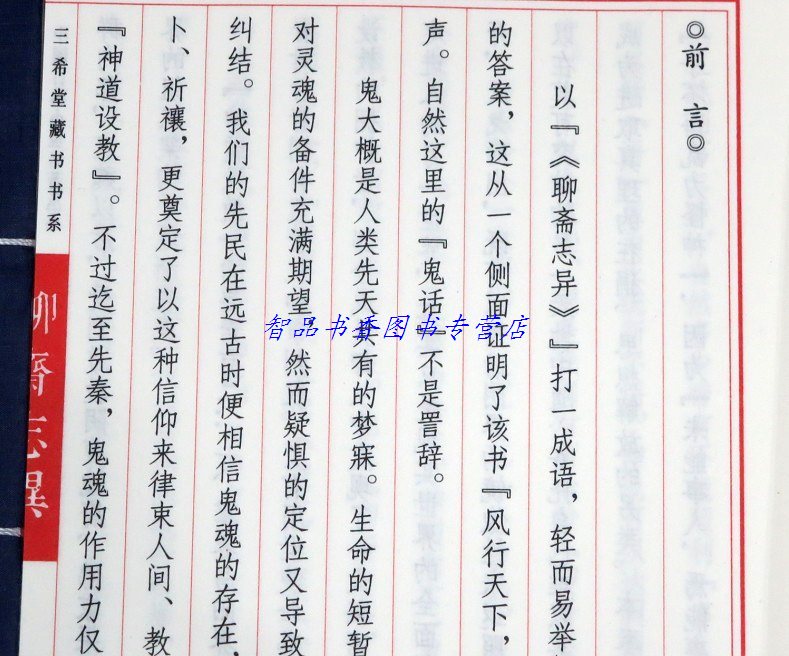 ◎前 言◎
以『《聊斋志异》』打一成语，轻而易举
的答案，这从一个侧面证明了该书『风行天下，
声。自然这里的『鬼话』不是詈辞。
鬼大概是人类先天具有的梦寐。生命的短暂
对灵魂的备件充满期望，然而疑惧的定位又导致
纠结。我们的先民在远古时便相信鬼魂的存在，
卜、祈禳，更奠定了以这种信仰来律束人间、教
『神道设教』。不过迄至先秦，鬼魂的作用力仅
三希堂藏书书系
聊齋志異
智品书香图书专营店